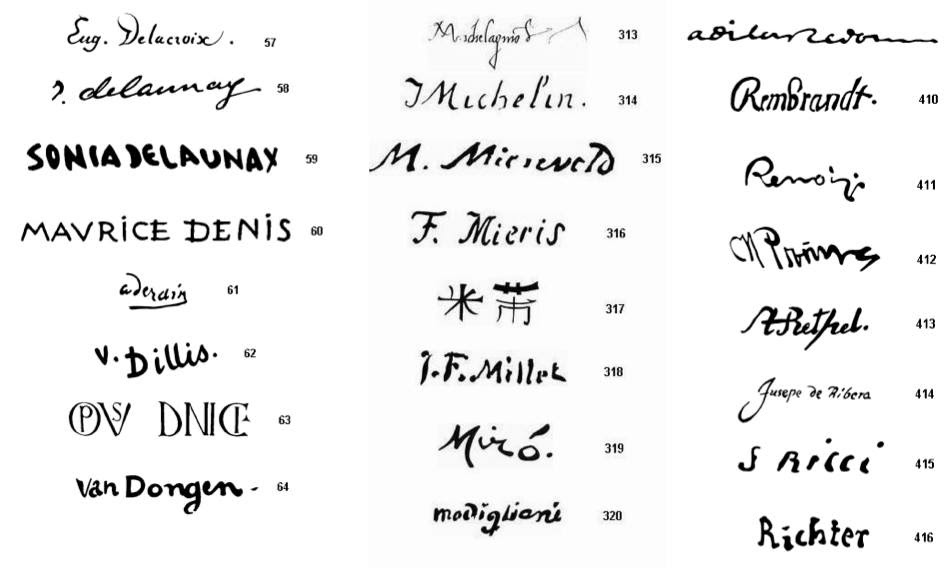 Eug. Delacroix. 57
r. delaunay 58
SONIA DELAUNAY 59
MAVRiCE DENiS 60
a derain 61
v. Dillis. 62
OPVS DNICI 63
van Dongen - 64
313
J Michelin. 314
M. Miereveld 315
F. Mieris 316
米芾 317
J. F. Millet 318
Miró. 319
modigliani 320
odilon Redon
Rembrandt. 410
Renoir. 411
412
A Rethel. 413
Jusepe de Ribera 414
S Ricci 415
Richter 416